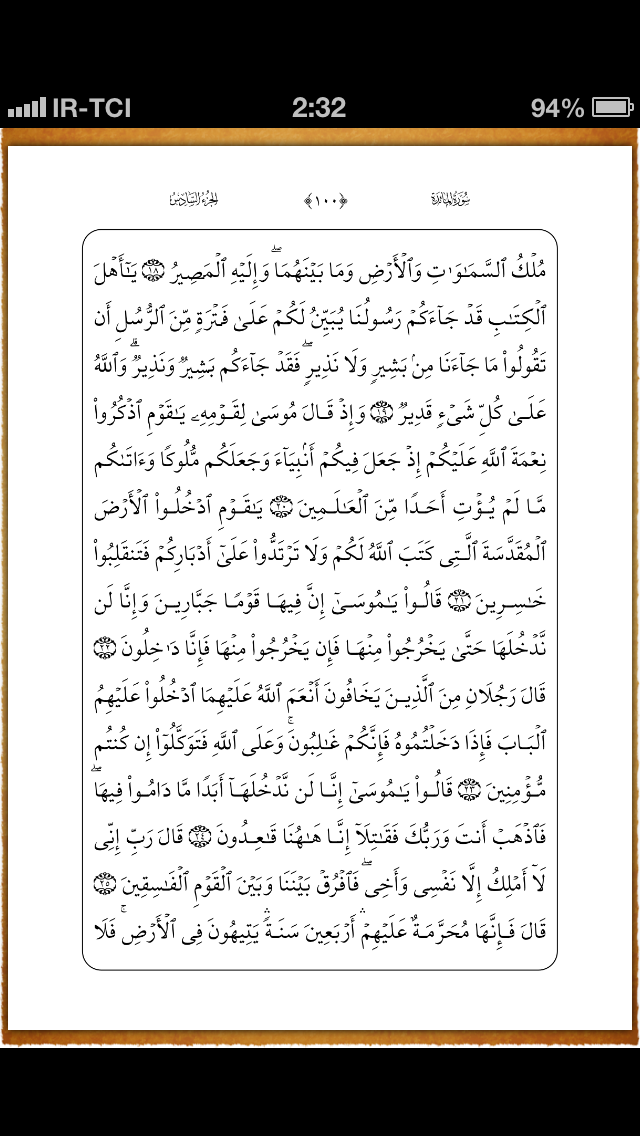 IR-TCI 2:32 94%
سُورَةُ المَائِدَة ﴿١٠٠﴾ الجُزءُ السَّادِسُ
مُلْكُ ٱلسَّمَٰوَٰتِ وَٱلْأَرْضِ وَمَا بَيْنَهُمَا ۖ وَإِلَيْهِ ٱلْمَصِيرُ ١٨ يَٰٓأَهْلَ
ٱلْكِتَٰبِ قَدْ جَآءَكُمْ رَسُولُنَا يُبَيِّنُ لَكُمْ عَلَىٰ فَتْرَةٍ مِّنَ ٱلرُّسُلِ أَن
تَقُولُوا۟ مَا جَآءَنَا مِنۢ بَشِيرٍ وَلَا نَذِيرٍ ۖ فَقَدْ جَآءَكُم بَشِيرٌ وَنَذِيرٌ ۗ وَٱللَّهُ
عَلَىٰ كُلِّ شَىْءٍ قَدِيرٌ ١٩ وَإِذْ قَالَ مُوسَىٰ لِقَوْمِهِۦ يَٰقَوْمِ ٱذْكُرُوا۟
نِعْمَةَ ٱللَّهِ عَلَيْكُمْ إِذْ جَعَلَ فِيكُمْ أَنۢبِيَآءَ وَجَعَلَكُم مُّلُوكًا وَءَاتَىٰكُم
مَّا لَمْ يُؤْتِ أَحَدًا مِّنَ ٱلْعَٰلَمِينَ ٢٠ يَٰقَوْمِ ٱدْخُلُوا۟ ٱلْأَرْضَ
ٱلْمُقَدَّسَةَ ٱلَّتِى كَتَبَ ٱللَّهُ لَكُمْ وَلَا تَرْتَدُّوا۟ عَلَىٰٓ أَدْبَارِكُمْ فَتَنقَلِبُوا۟
خَٰسِرِينَ ٢١ قَالُوا۟ يَٰمُوسَىٰٓ إِنَّ فِيهَا قَوْمًا جَبَّارِينَ وَإِنَّا لَن
نَّدْخُلَهَا حَتَّىٰ يَخْرُجُوا۟ مِنْهَا فَإِن يَخْرُجُوا۟ مِنْهَا فَإِنَّا دَٰخِلُونَ ٢٢
قَالَ رَجُلَانِ مِنَ ٱلَّذِينَ يَخَافُونَ أَنْعَمَ ٱللَّهُ عَلَيْهِمَا ٱدْخُلُوا۟ عَلَيْهِمُ
ٱلْبَابَ فَإِذَا دَخَلْتُمُوهُ فَإِنَّكُمْ غَٰلِبُونَ ۚ وَعَلَى ٱللَّهِ فَتَوَكَّلُوٓا۟ إِن كُنتُم
مُّؤْمِنِينَ ٢٣ قَالُوا۟ يَٰمُوسَىٰٓ إِنَّا لَن نَّدْخُلَهَآ أَبَدًا مَّا دَامُوا۟ فِيهَا ۖ
فَٱذْهَبْ أَنتَ وَرَبُّكَ فَقَٰتِلَآ إِنَّا هَٰهُنَا قَٰعِدُونَ ٢٤ قَالَ رَبِّ إِنِّى
لَآ أَمْلِكُ إِلَّا نَفْسِى وَأَخِى ۖ فَٱفْرُقْ بَيْنَنَا وَبَيْنَ ٱلْقَوْمِ ٱلْفَٰسِقِينَ ٢٥
قَالَ فَإِنَّهَا مُحَرَّمَةٌ عَلَيْهِمْ ۛ أَرْبَعِينَ سَنَةً ۛ يَتِيهُونَ فِى ٱلْأَرْضِ ۚ فَلَا